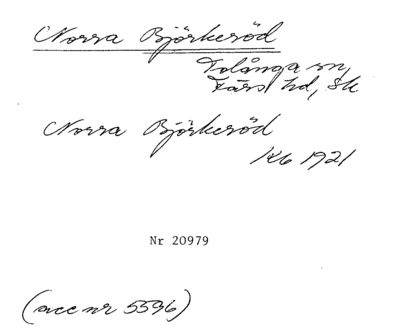 Norra Björkeröd
Tolånga sn,
Färs hd, Sk
Norra Björkeröd
Kb 1921
Nr 20979
(acc nr 5596)